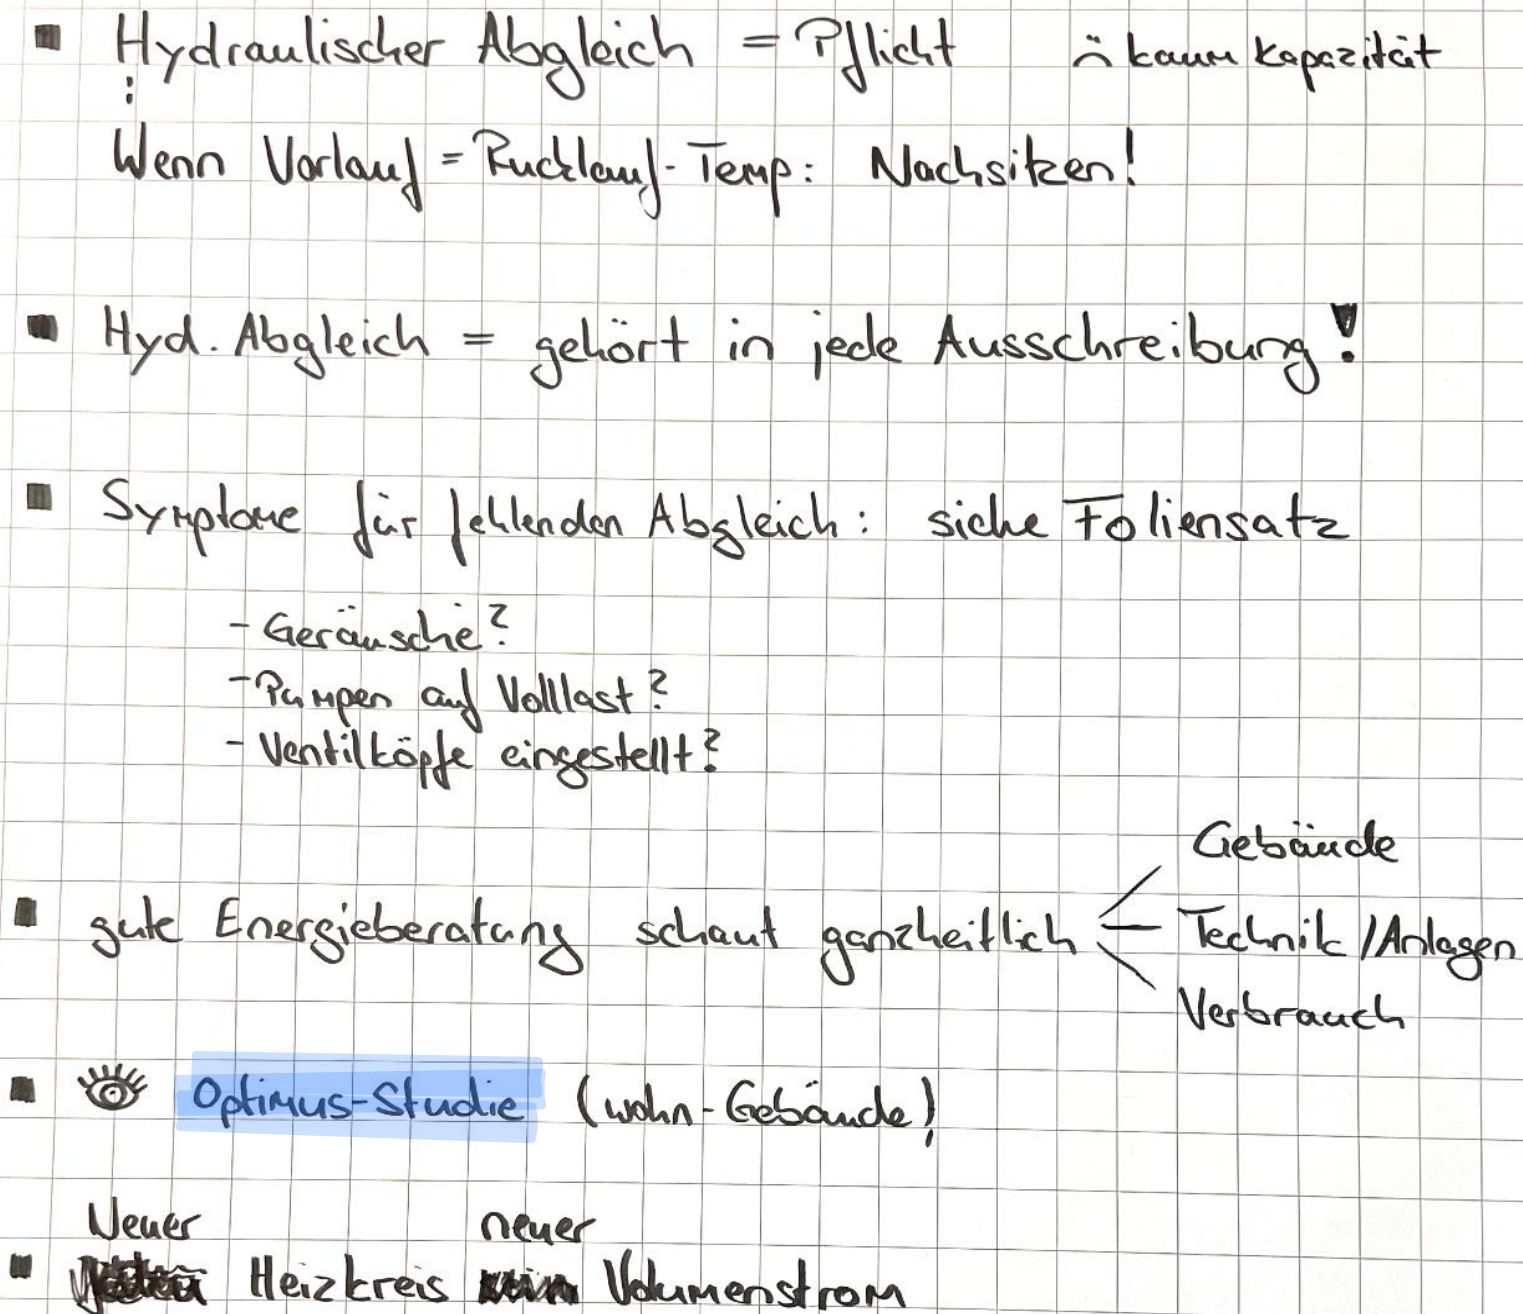 ▪ Hydraulischer Abgleich = Pflicht ⍨ kaum Kapazität
:
Wenn Vorlauf = Rucklauf-Temp: Nachsitzen!
▪ Hyd. Abgleich = gehört in jede Ausschreibung!
▪ Symptome für fehlenden Abgleich: siehe Foliensatz
- Geräusche?
- Pumpen auf Volllast?
- Ventilköpfe eingestellt?
▪ gute Energieberatung schaut ganzheitlich
Gebäude
Technik / Anlagen
Verbrauch
▪ Optimus-Studie (wohn-Gebäude)
Neuer neuer
▪ Heizkreis Volumenstrom